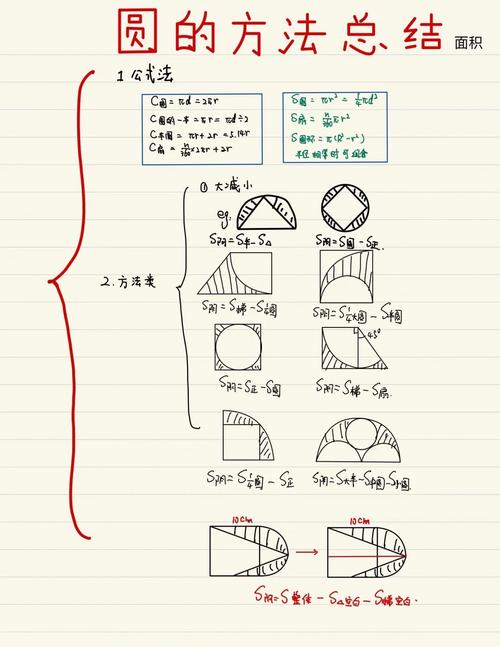 圆的方法总结 面积
1 公式法
C圆 = πd = 2πr
C圆的一半 = πr = πd÷2
C半圆 = πr + 2r = 5.14r
C扇 = n/360 × 2πr + 2r
S圆 = πr² = 1/4πd²
S扇 = n/360 πr²
S圆环 = π(R²-r²)
半径相等时可组合
2. 方法类
① 大减小
eg.
S阴=S半-S△
S阴=S圆-S正.
S阴=S梯-S1/4圆
S阴=S1/4大圆-S半圆
45°
S阴=S正-S圆
S阴=S梯-S扇.
S阴=S1/4圆-S正
S阴=S大半-S中圆-S小圆.
10cm
10cm
S阴=S整体-S△空白-S梯空白.